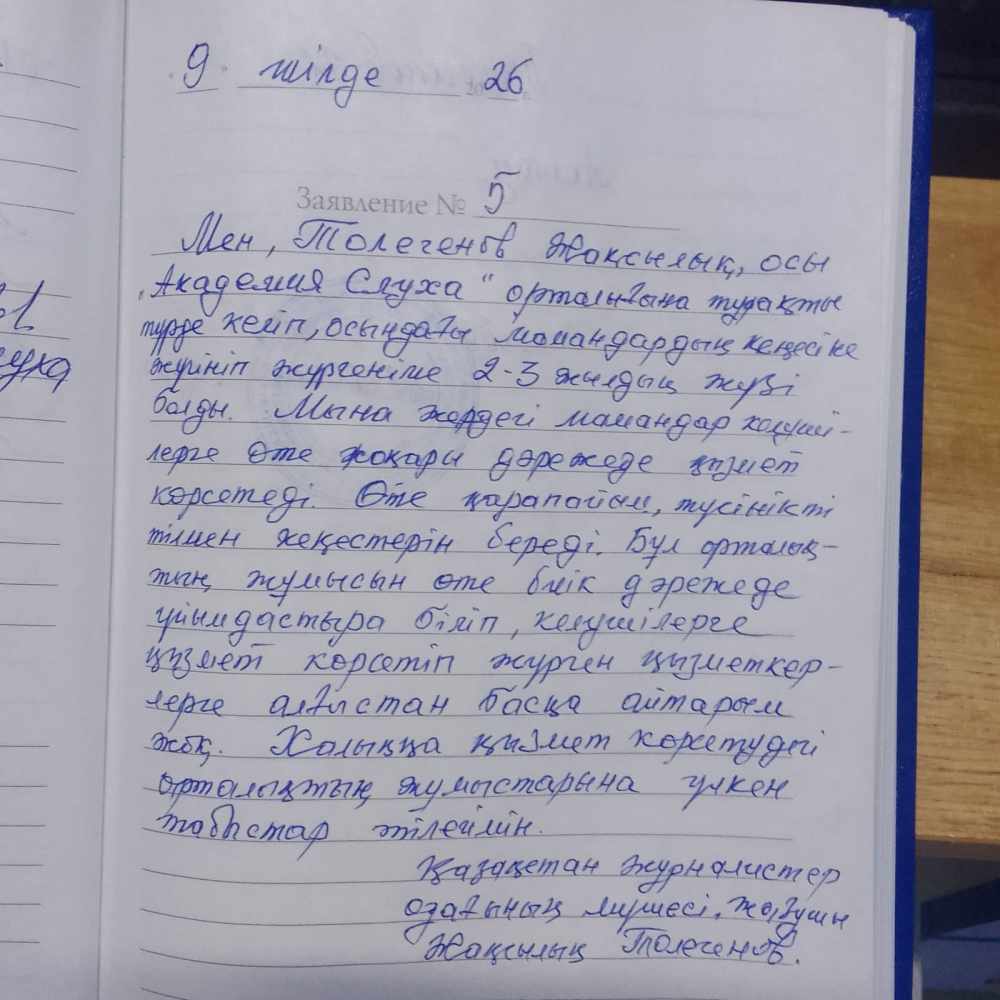 9 шілде 2026
Заявление № 5
Мен, Төлегенов Жақсылық, осы
„Академия Слуха" орталығына тұрақты
түрде келіп, осындағы мамандардың кеңесіне
жүгініп жүргеніме 2-3 жылдың жүзі
болды. Мына жердегі мамандар келуші-
лерге өте жоқары дәрежеде қызмет
көрсетеді. Өте қарапайым, түсінікті
тілмен кеңестерін береді. Бұл орталық-
тың жұмысын өте биік дәрежеде
ұйымдастыра біліп, келушілерге
қызмет көрсетіп жүрген қызметкер-
лерге алғыстан басқа айтарым
жоқ. Халыққа қызмет көрсетудегі
орталықтың жұмыстарына үлкен
табыстар тілеймін.
Қазақстан журналистер
одағының мүшесі, жазушы
Жақсылық Төлегенов.